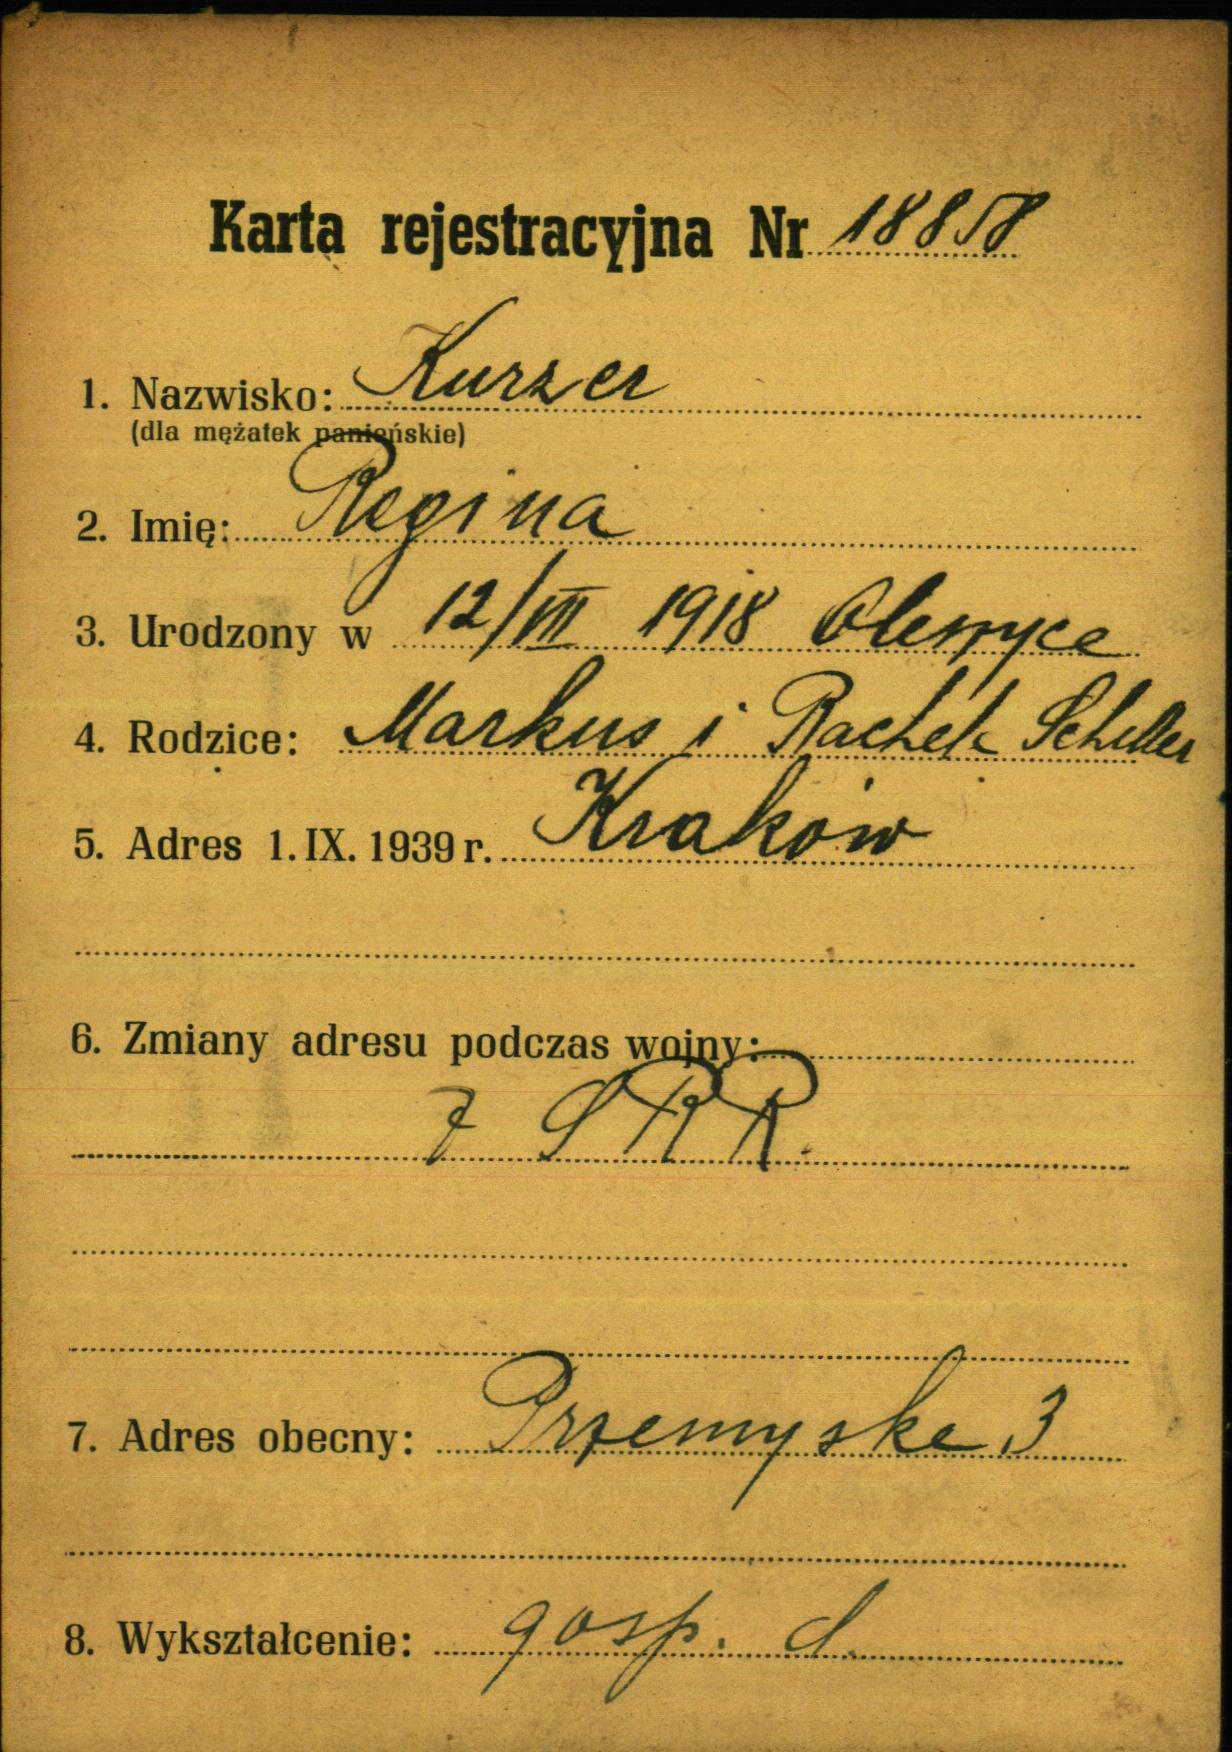 Karta rejestracyjna Nr 18858
1. Nazwisko: Kurzer
(dla mężatek panieńskie)
2. Imię: Regina
3. Urodzony w 12/VII 1918
4. Rodzice: Markus i Rachela Schiller
5. Adres 1. IX. 1939 r. Kraków
6. Zmiany adresu podczas wojny:
Z SRR.
7. Adres obecny: Przemyska 3
8. Wykształcenie: gosp. d.